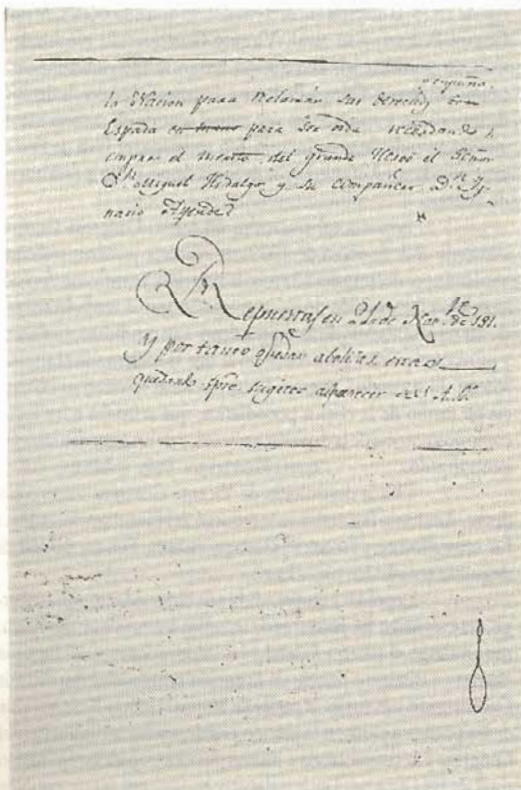 la Nacion para reclamar sus derechos
Espada en mano para ser oida recordando
siempre el merito del grande Heroe el Señor
Dn Miguel Hidalgo y su compañero Dn Ig-
nacio Ayende
Repuestas en 21 de Nov.re de 181.
Y por tanto quedan abolidas estas
quedando spre. sugetos al parecer de